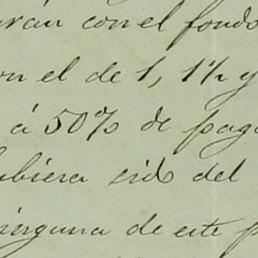 rán con el fondo
on el de 1, 1½ y
á 50% de pag
ubiera sido del
ninguna de este p